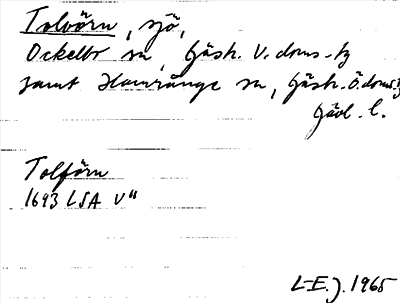 Tolvörn, sjö,
Ockelbo sn, Gästr. V. doms-tg
samt Hamrånge sn, Gästr. Ö. doms-tg
Gävl. l.
Tolförn
1693 LSA V"
L-E. J. 1965